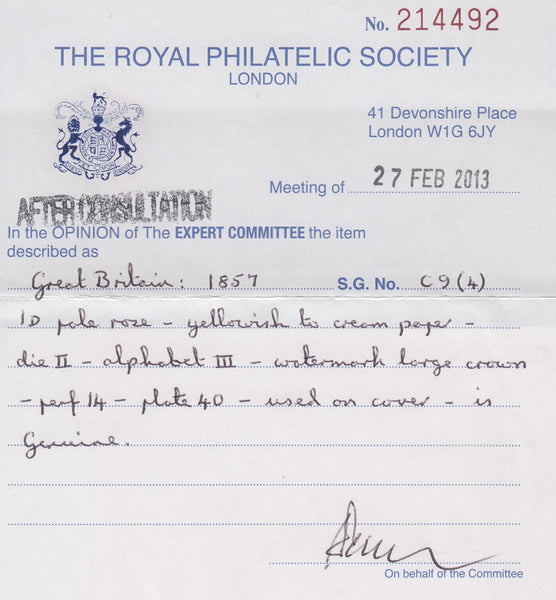 No. 214492
THE ROYAL PHILATELIC SOCIETY
LONDON
41 Devonshire Place
London W1G 6JY
Meeting of 27 FEB 2013
AFTER CONSULTATION
In the OPINION of The EXPERT COMMITTEE the item
described as
Great Britain: 1857 S.G. No. C9(4)
1D pale rose - yellowish to cream paper -
die II - alphabet III - watermark large crown
- perf 14 - plate 40 - used on cover - is
Genuine.
On behalf of the Committee